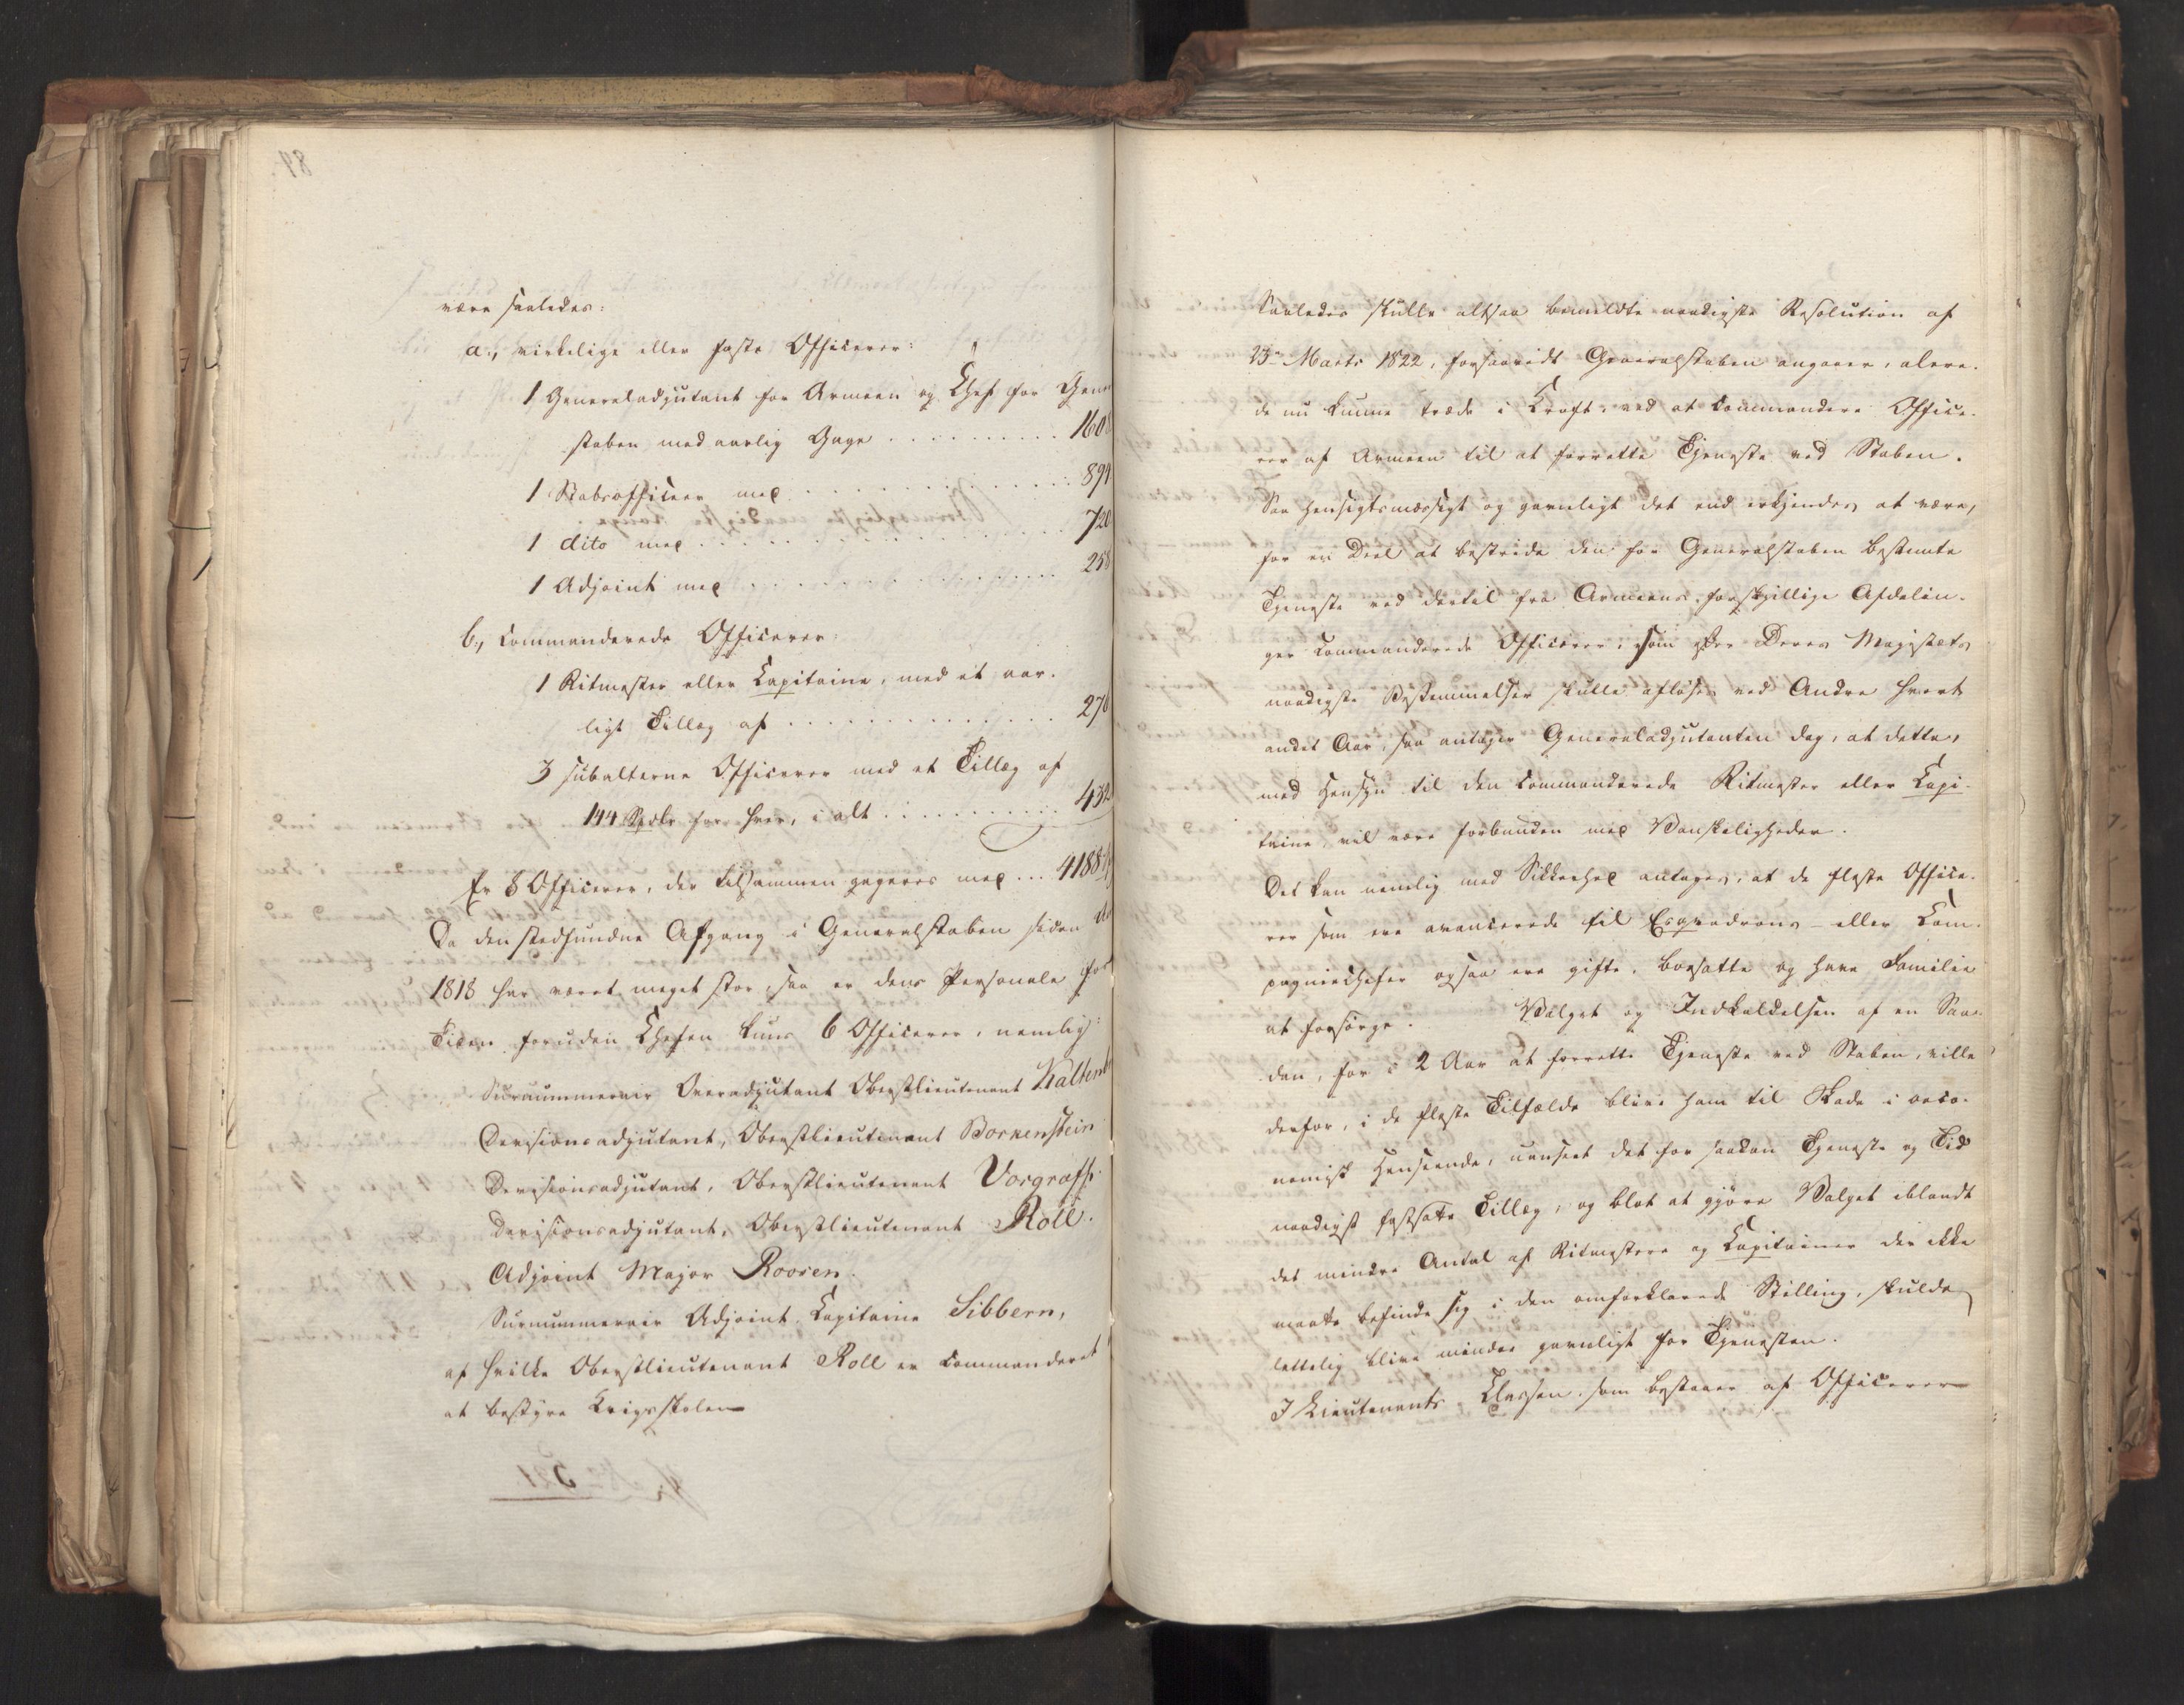 være saaledes:
a., virkelige eller faste Officerer:
1 Generaladjutant for Armeen og Chef for Gene
staben med aarlig Gage . . . . . . . . . . 1608
1 Stabsofficeer med . . . . . . . . . . . . . . 894
1 dito med . . . . . . . . . . . . . . . . . 720
1 Adjoint med . . . . . . . . . . . . . . . . 258
b., Commanderede Officerer:
1 Ritmester eller Capitaine, med et aar-
ligt Tillæg af . . . . . . . . . . . . . . 276
3 subalterne Officerer med et Tillæg af
144 Spdlr for hver, i alt . . . . . . . . . . 432
Er 8 Officerer, der tilsammen gageres med . . . 4188
Da den stedfundne Afgang i Generalstaben siden
1818 har været meget stor, saa er dens Personale for
Tiden foruden Chefen kuns 6 Officerer, nemlig:
Surnummerair Overadjutant Oberstlieutenant
Devisionsadjutant, Oberstlieutenant Borkenstein
Devisionsadjutant, Oberstlieutenant Vorgraff.
Devisionsadjutant, Oberstlieutenant Roll.
Adjoint Major Roosen.
Surnummerair Adjoint Capitaine Sibbern,
af hvilke Oberstlieutenant Roll er Commanderet
at bestyre Krigsskolen
Saaledes skulle altsaa bemeldte naadigste Resolution af
23de Marts 1822, forsaavidt Generalstaben angaaer, alere-
de nu kunne træde i Kraft, ved at Commandere Office-
rer af Armeen til at forrette Tjeneste ved Staben.
Saa hensigtsmæssigt og gavnligt det end erkjendes at være,
for en Deel at bestride den for Generalstaben bestemte
Tjeneste ved dertil fra Armeens forskjellige Afdelin-
ger Commanderede Officerer, som efter Deres Majestæts
naadigste Bestemmelser skulle afløses ved Andre hvert
andet Aar, saa antager Generaladjutanten dog, at dette,
med Hensyn til den Commanderede Ritmester eller Capi-
taine, vil være forbunden med Vanskeligheder.
Det kan nemlig med Sikkerhed antages, at de fleste Office-
rer som ere avancerede til Esqvadrons- eller Com-
pagniechefer ogsaa ere gifte, bosatte og have Familie
at forsørge. Valget og Indkaldelsen af en Saa-
dan, for i 2 Aar at forrette Tjeneste ved Staben, ville
derfor, i de fleste Tilfælde blive ham til Skade i oeco-
nomisk Henseende, uanseet det for saadan Tjeneste og Tid
naadigst fastsatte Tillæg, og blot at gjøre Valget iblandt
det mindre Antal af Ritmestere og Capitainer der ikke
maatte befinde sig i den omforklarede Stilling, skulde
lettelig blive mindre gavnligt for Tjenesten.
I Lieutenants Classen, som bestaaer af Officerer